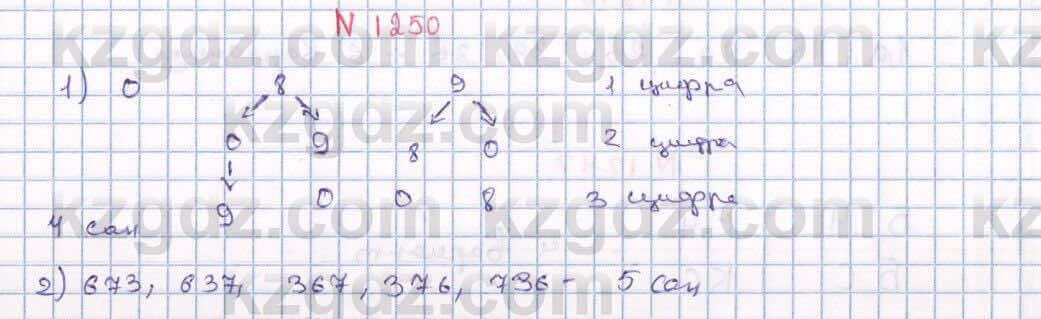 N 1250
1) 0 8 9 1 цифра
0 9 8 0 2 цифра
9 0 0 8 3 цифра
4 сан
2) 673, 637, 367, 376, 736 - 5 сан
kzgdz.com